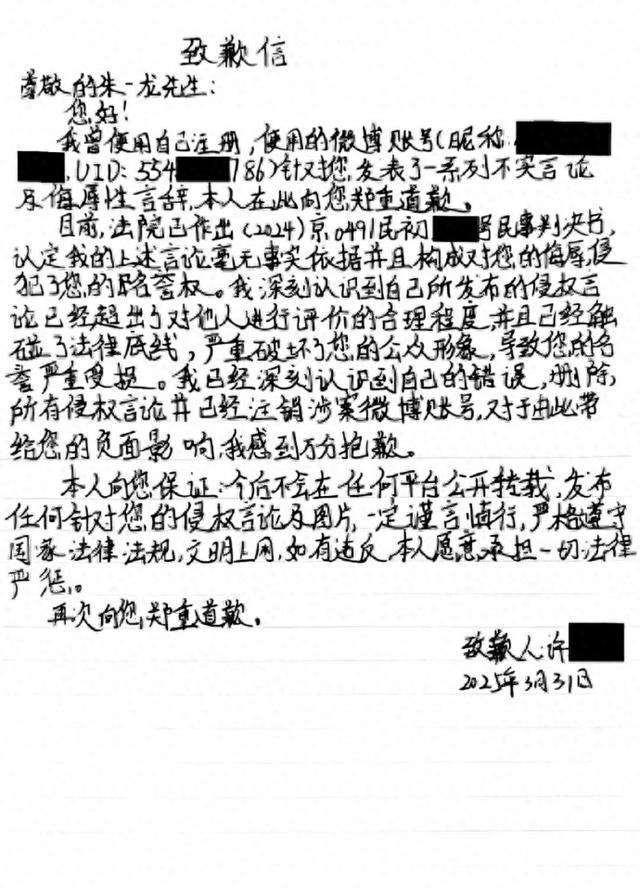 致歉信
尊敬的朱一龙先生:
您好!
我曾使用自己注册,使用的微博账号(昵称:
,UID:554 786)针对您,发表了一系列不实言论
及侮辱性言辞,本人在此向您郑重道歉。
目前,法院已作出(2024)京0491民初 号民事判决书,
认定我的上述言论毫无事实依据并且构成对您的侮辱,侵
犯了您的名誉权。我深刻认识到自己所发布的侵权言
论已经超出了对他人进行评价的合理程度,并且已经触
碰了法律底线,严重破坏了您的公众形象,导致您的名
誉严重受损。我已经深刻认识到自己的错误,删除
所有侵权言论并已经注销涉案微博账号,对于由此带
给您的负面影响,我感到万分抱歉。
本人向您保证:今后不会在任何平台公开转载,发布
任何针对您的侵权言论及图片,一定谨言慎行,严格遵守
国家法律法规,文明上网,如有违反,本人愿意承担一切法律
严惩。
再次向您郑重道歉。
致歉人:许
2025年3月31日